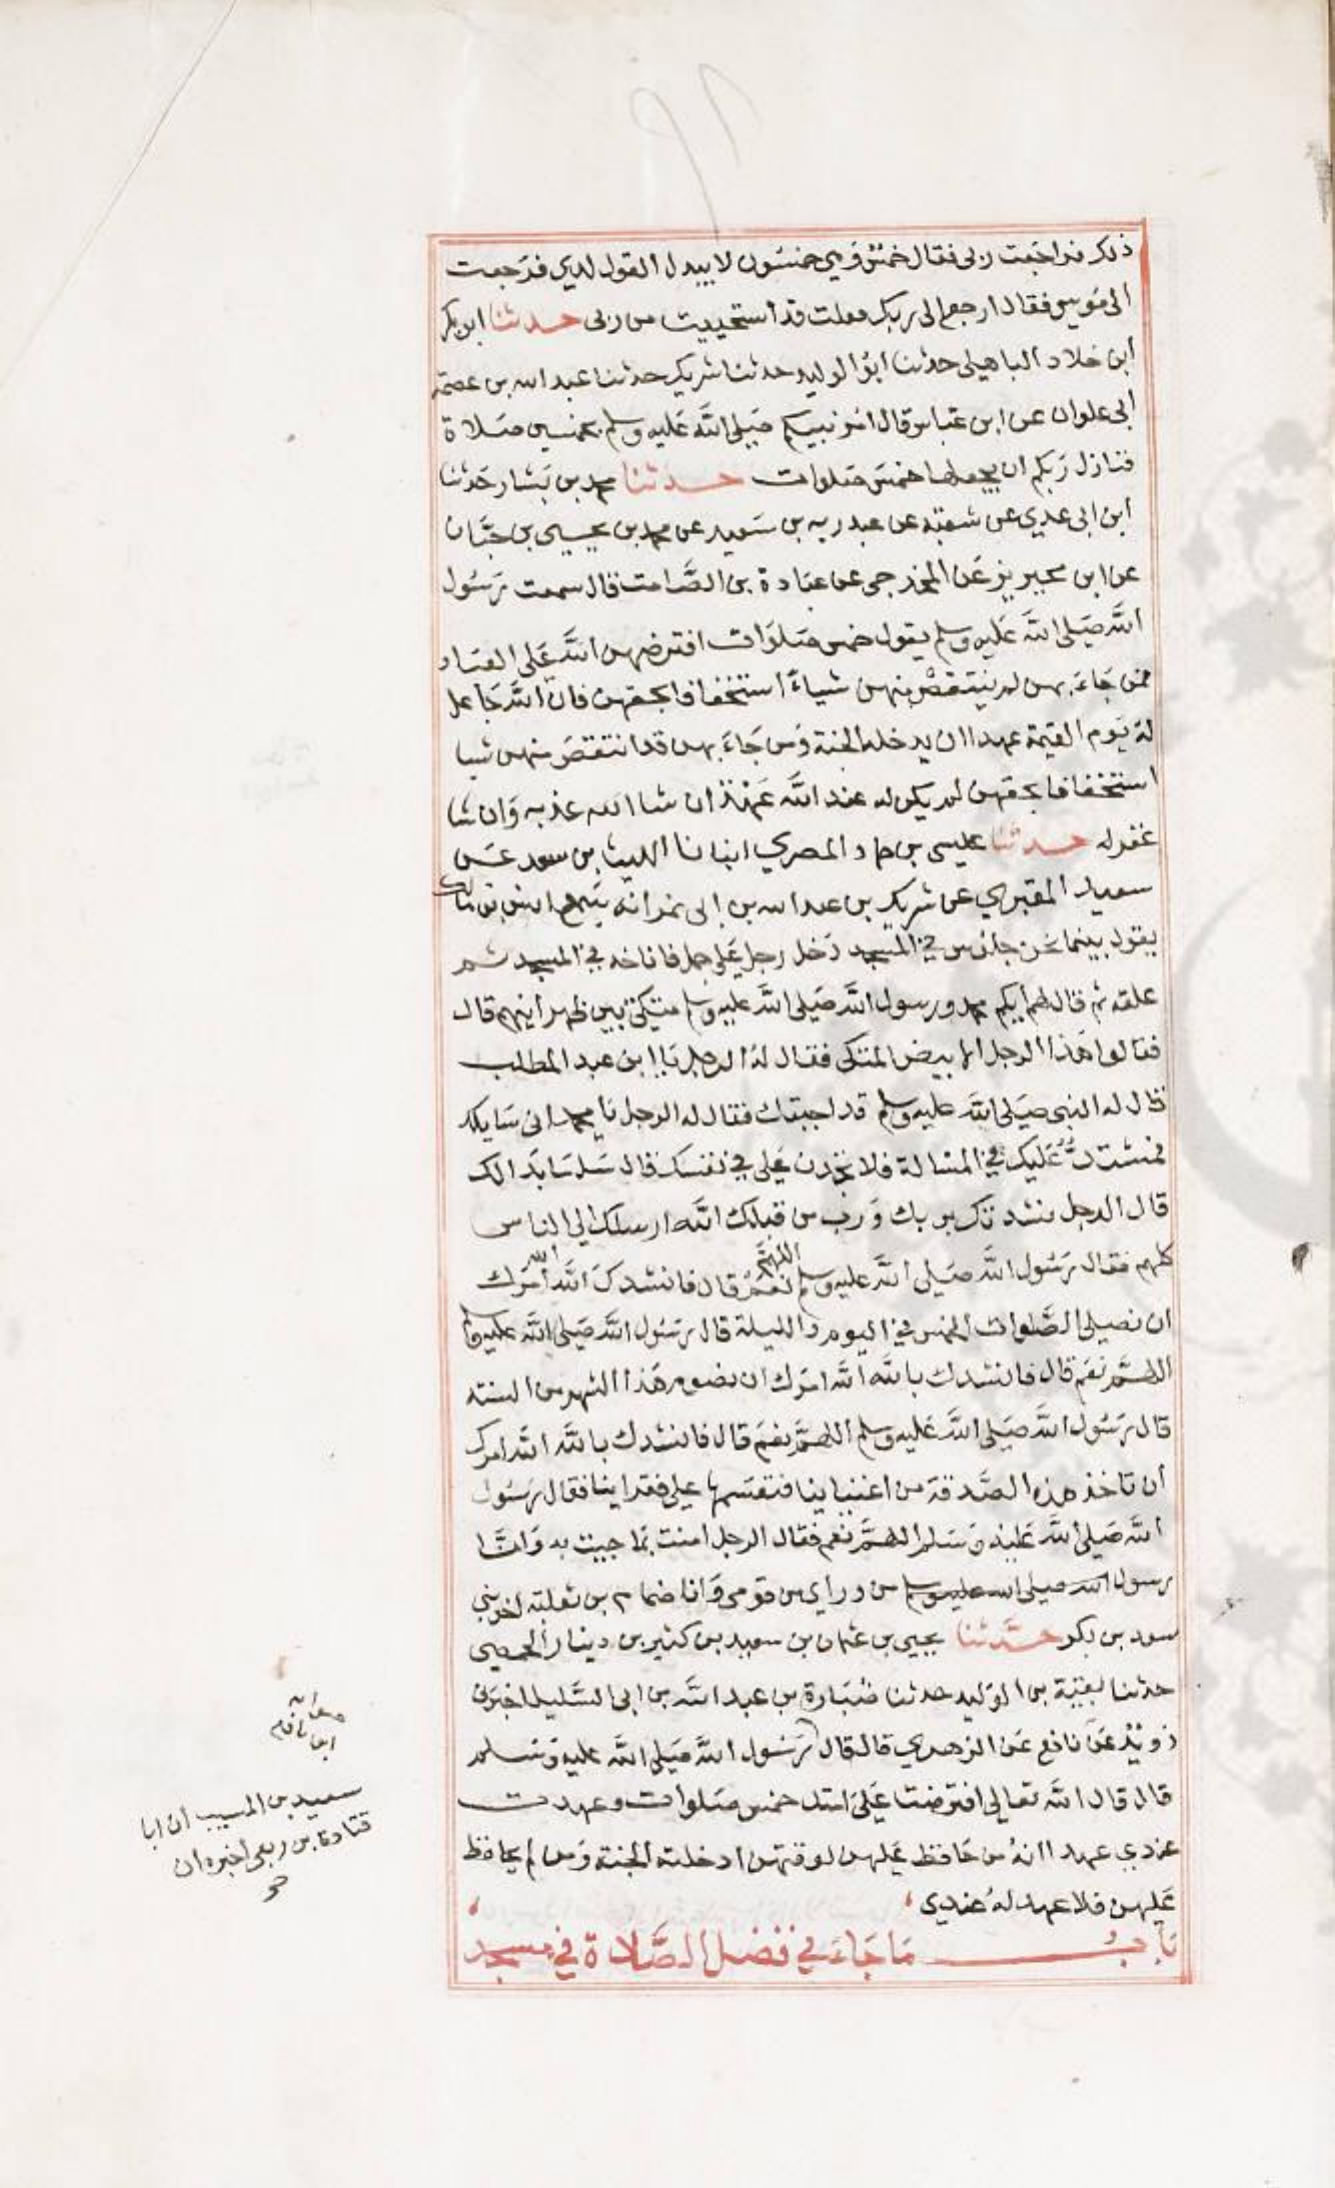 ذلك فراجعت ربى فقال خمسٌ وهي خمسون لا يبدل القول لدي فرجعت
الى موسى فقال ارجع الى ربك فقلت قد استحييت من ربى حدثنا ابو بكر
ابن خلاد الباهيلى حدثنا ابوُ الوليد حدثنا شريك حدثنا عبد الله بن عصمة
ابى علوان عن ابن عباس قال امر نبيكم صَلى اللَّه عَليه وسلم بخمسين صَلاة
فنازل رَبكم ان يجعلها خمسَ صَلوات حدثنا محمد بن بَشار حَدثنا
ابن ابى عَدي عن شعبَة عن عبد ربه بن سَعيد عن محمد بن يحيى بن حَبَّان
عن ابن محيريز عَن المخدجى عن عبَادة بن الصَّامت قال سمعت رسُول
اللَّه صَلى اللَّه عَليه وسلم يقول خمس صَلوَات افترضهن اللَّه عَلى العبَاد
فمن جَاءَ بهن لم ينتقصْ منهن شياءً استخفافا بحقهن فان اللَّه جَاعل
لهُ يَوم القيمة عهدا ان يدخله الجنة وَمن جَاءَ بهن قد انتقصَ منهن شيا
استخفافا بحقهن لم يكن له عند اللَّه عَهدٌ ان شا الله عذبه وَان شا
غفر له حدثنا عيسى بن حماد المصري انبانا الليث بن سعد عَن
سعيد المقبري عن شريك بن عبد الله بن ابى نمر انه سَمع انس بن مَالك
يقول بينما نحن جلوس في المسجد دَخل رجل عَلى جمل فاناخه في المسجد ثم
عقله ثم قال لهم أيكم محمد ورسول اللَّه صَلى اللَّه عليه وسلم متكئ بين ظهرانيهم قال
فقالوا هَذا الرجل الابيض المتكى فقال لهُ الرجل يَا ابن عبد المطلب
فقال له النبى صَلى اللَّه عليه وسلم قد اجبتك فقال له الرجل يَا محمد انى سَايلك
فمشتدٌّ عَليك في المسَالة فلا تجدن عَلى في نفسك قال سَل مَا بَدا لك
قال الرجل نشدتك بربك وَرب من قبلك اللَّه ارسلك الى الناس
كلهم فقال رسُول اللَّه صَلى اللَّه عليه وسلم اللهم نعمْ قال فانشدك اللَّه الله أمرك
ان نصلى الصَّلوات الخمس في اليوم والليلة قال رسُول اللَّه صَلى اللَّه عليه وسلم
اللهمَّ نعَم قال فانشدك باللَّه اللَّه امرَك ان نصوم هَذا الشهر من السنة
قال رسُول اللَّه صَلى اللَّه عَليه وسلم اللهمَّ نعَم قال فانشدك باللَّه اللَّه امرك
أن تاخذ هذه الصَّدقة من اغنيائنا فتقسَمها على فقراينا فقال رسُول
اللَّه صَلى اللَّه عَليه وَسَلم اللهمَّ نعم فقال الرجل امنت بمَا جيت به وَانَا
رسول الله صلى الله عليه وسلم من وراي من قومى وَانا ضمام بن ثعلبة اخو بني
سعد بن بكر حدَّثنا يحيى بن عثمان بن سعيد بن كثير بن دينار الحمصى
حدثنا بقية بن الوَليد حدثنا ضُبَارة بن عبد اللَّه بن ابى السَّليل اخبرَنى
ذويْدُ عَن نافع عَن الزهري قال قال رسُول اللَّه صَلى اللَّه عليه وَسَلم
قال قال اللَّه تعالى افترضت عَلى امتك خمس صَلوات وعهدت
عندي عهدا انهُ من حَافظ عَليهن لوقتهن ادخلته الجنة وَمن لم يحافظ
عَليهن فلا عهد لهُ عندي
بَابُ مَا جَاءَ في فضل الصَّلاة في مسجد
سعيد بن المسيب ان ابا
قتادة بن ربعى اخبره ان
صح